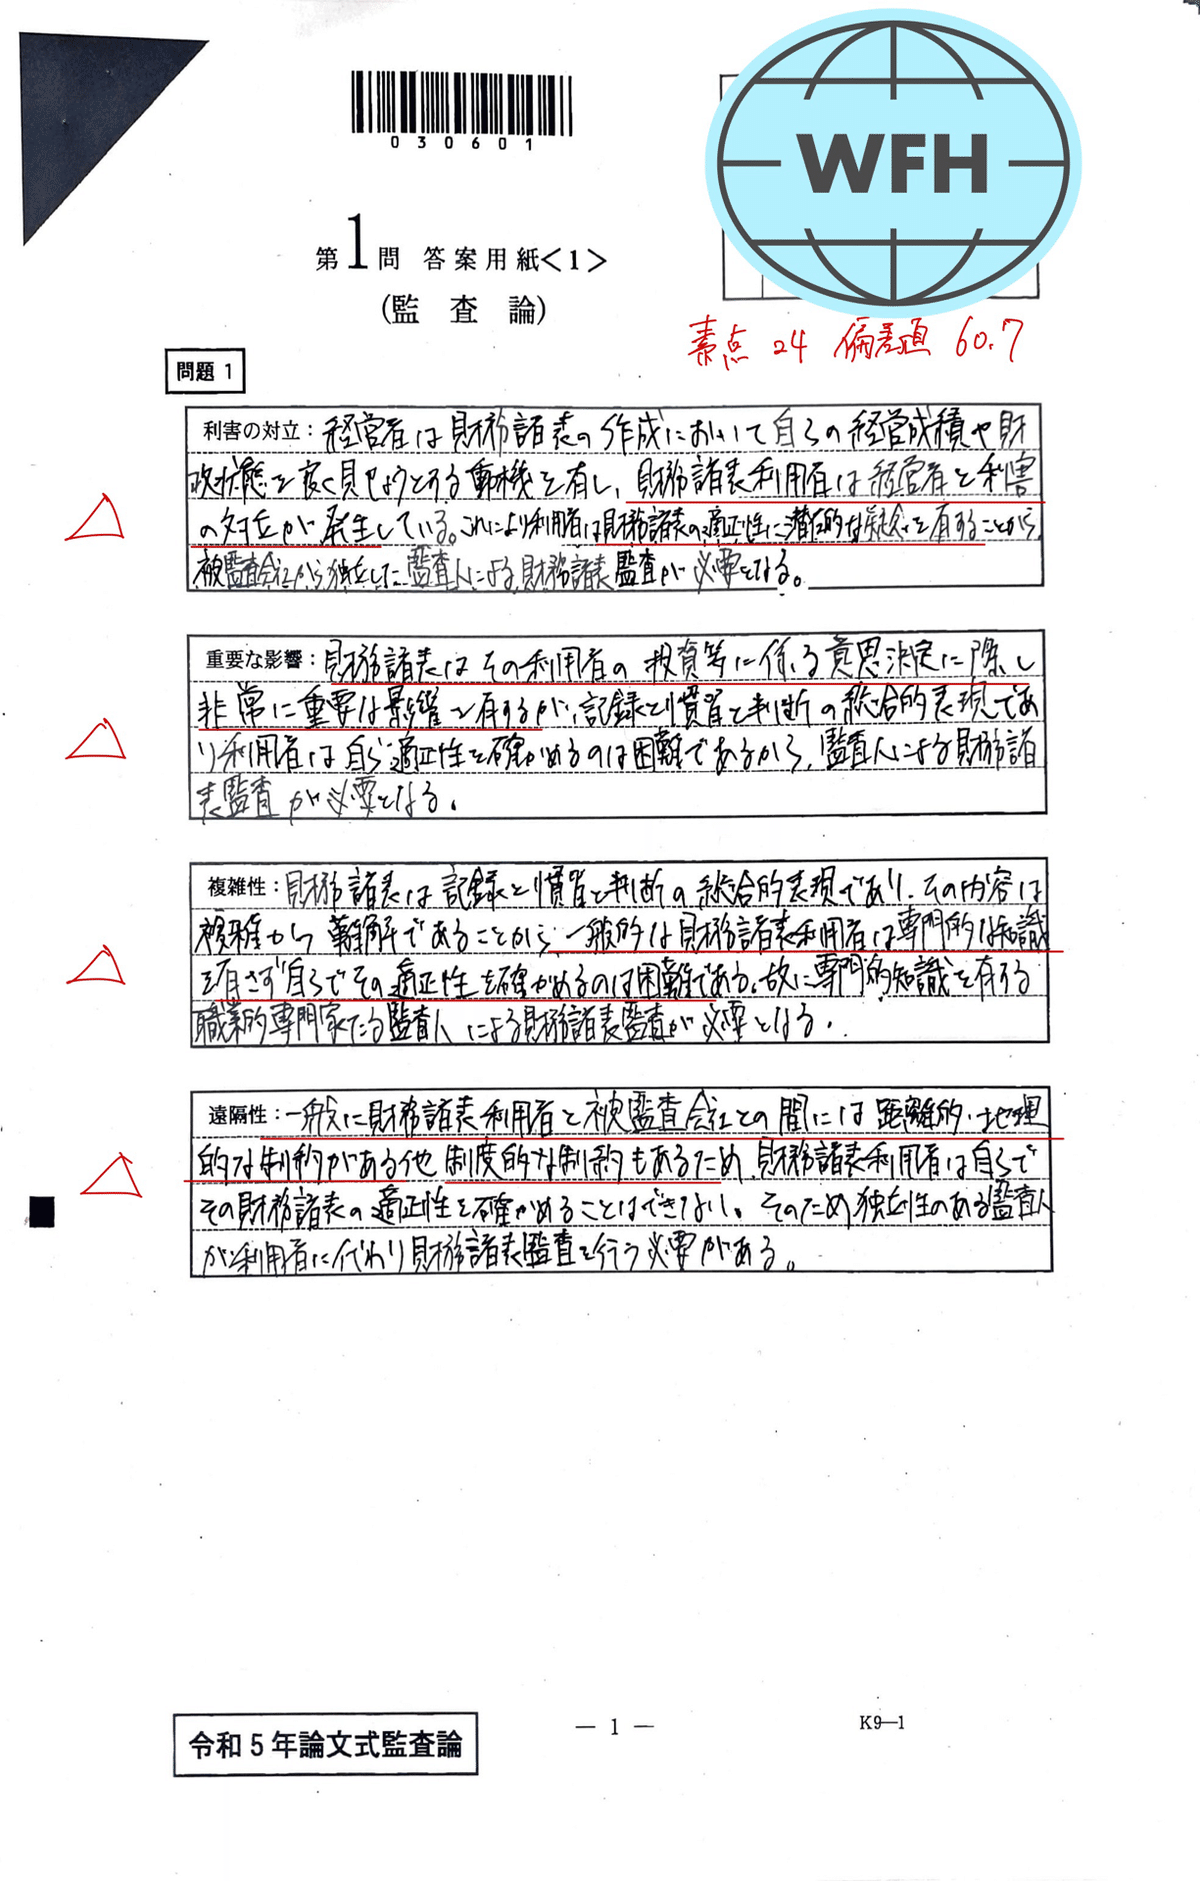 030601
WFH
第1問 答案用紙<1>
(監査論)
素点 24 偏差値 60.7
問題 1
利害の対立：経営者は財務諸表の作成において自らの経営成績や財
政状態を良く見せようとする動機を有し、財務諸表利用者は経営者と利害
の対立が発生している。これにより利用者は財務諸表の適正性に潜在的な疑念を有することから、
被監査会社から独立した監査人による財務諸表監査が必要となる。
重要な影響：財務諸表はその利用者の投資等に係る意思決定に際し
非常に重要な影響を有するが、記録と慣習と判断の総合的表現であ
り利用者は自ら適正性を確かめるのは困難であるから、監査人による財務諸
表監査が必要となる。
複雑性：財務諸表は記録と慣習と判断の総合的表現であり、その内容は
複雑かつ難解であることから、一般的な財務諸表利用者は専門的な知識
を有さず自らでその適正性を確かめるのは困難である。故に専門的知識を有する
職業的専門家たる監査人による財務諸表監査が必要となる。
遠隔性：一般に財務諸表利用者と被監査会社との間には距離的・地理
的な制約がある他、制度的な制約もあるため、財務諸表利用者は自らで
その財務諸表の適正性を確かめることはできない。そのため独立性のある監査人
が利用者に代わり財務諸表監査を行う必要がある。
令和5年論文式監査論
― 1 ―
K9―1